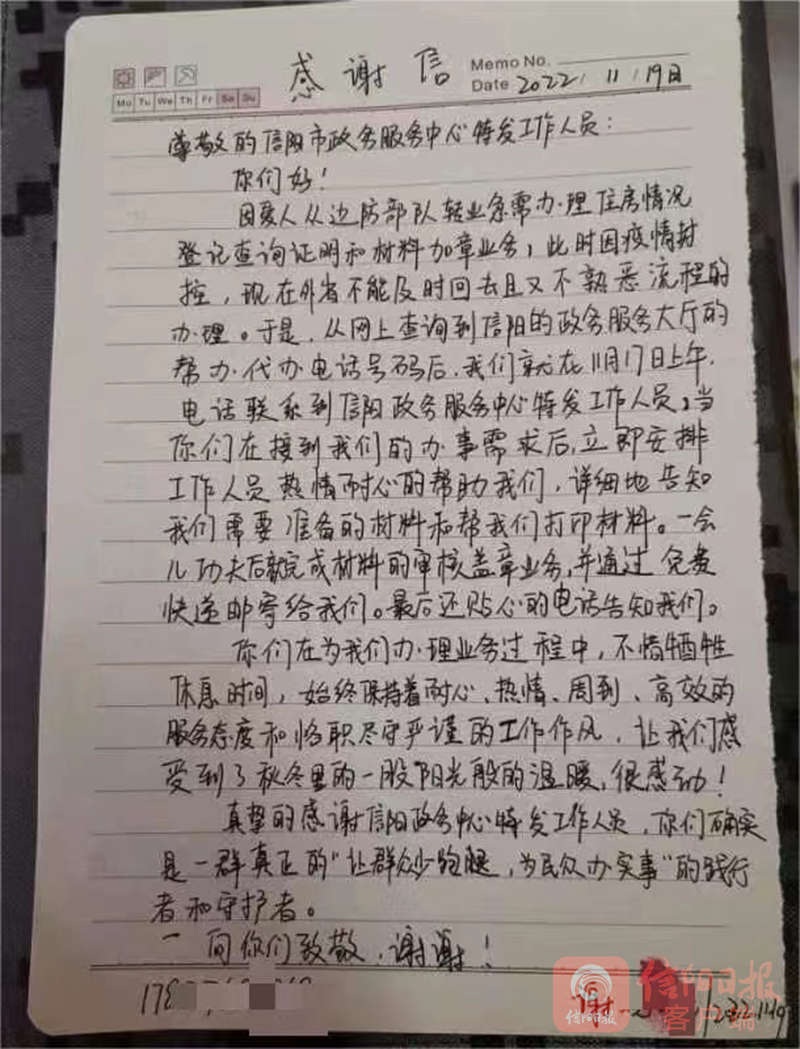 感谢信
Memo No.
Mo Tu We Th Fr Sa Su
Date 2022/11/19日
尊敬的信阳市政务服务中心特发工作人员：
你们好！
因爱人从边防部队转业急需办理住房情况
登记查询证明和材料加章业务，此时因疫情封
控，现在外省不能及时回去且又不熟悉流程的
办理。于是，从网上查询到信阳的政务服务大厅的
帮办代办电话号码后，我们就在11月17日上午，
电话联系到信阳政务服务中心特发工作人员，当
你们在接到我们的办事需求后，立即安排
工作人员热情耐心的帮助我们，详细地告知
我们需要准备的材料和帮我们打印材料。一会
儿功夫后就完成材料的审核盖章业务，并通过免费
快递邮寄给我们。最后还贴心的电话告知我们。
你们在为我们办理业务过程中，不惜牺牲
休息时间，始终保持着耐心、热情、周到、高效的
服务态度和恪职尽守严谨的工作作风，让我们感
受到了秋冬里的一股阳光般的温暖，很感动！
真挚的感谢信阳政务中心特发工作人员，你们确实
是一群真正的“让群众少跑腿，为民众办实事”的践行
者和守护者。
一向你们致敬，谢谢！
谢
信阳日报
信阳日报
客户端